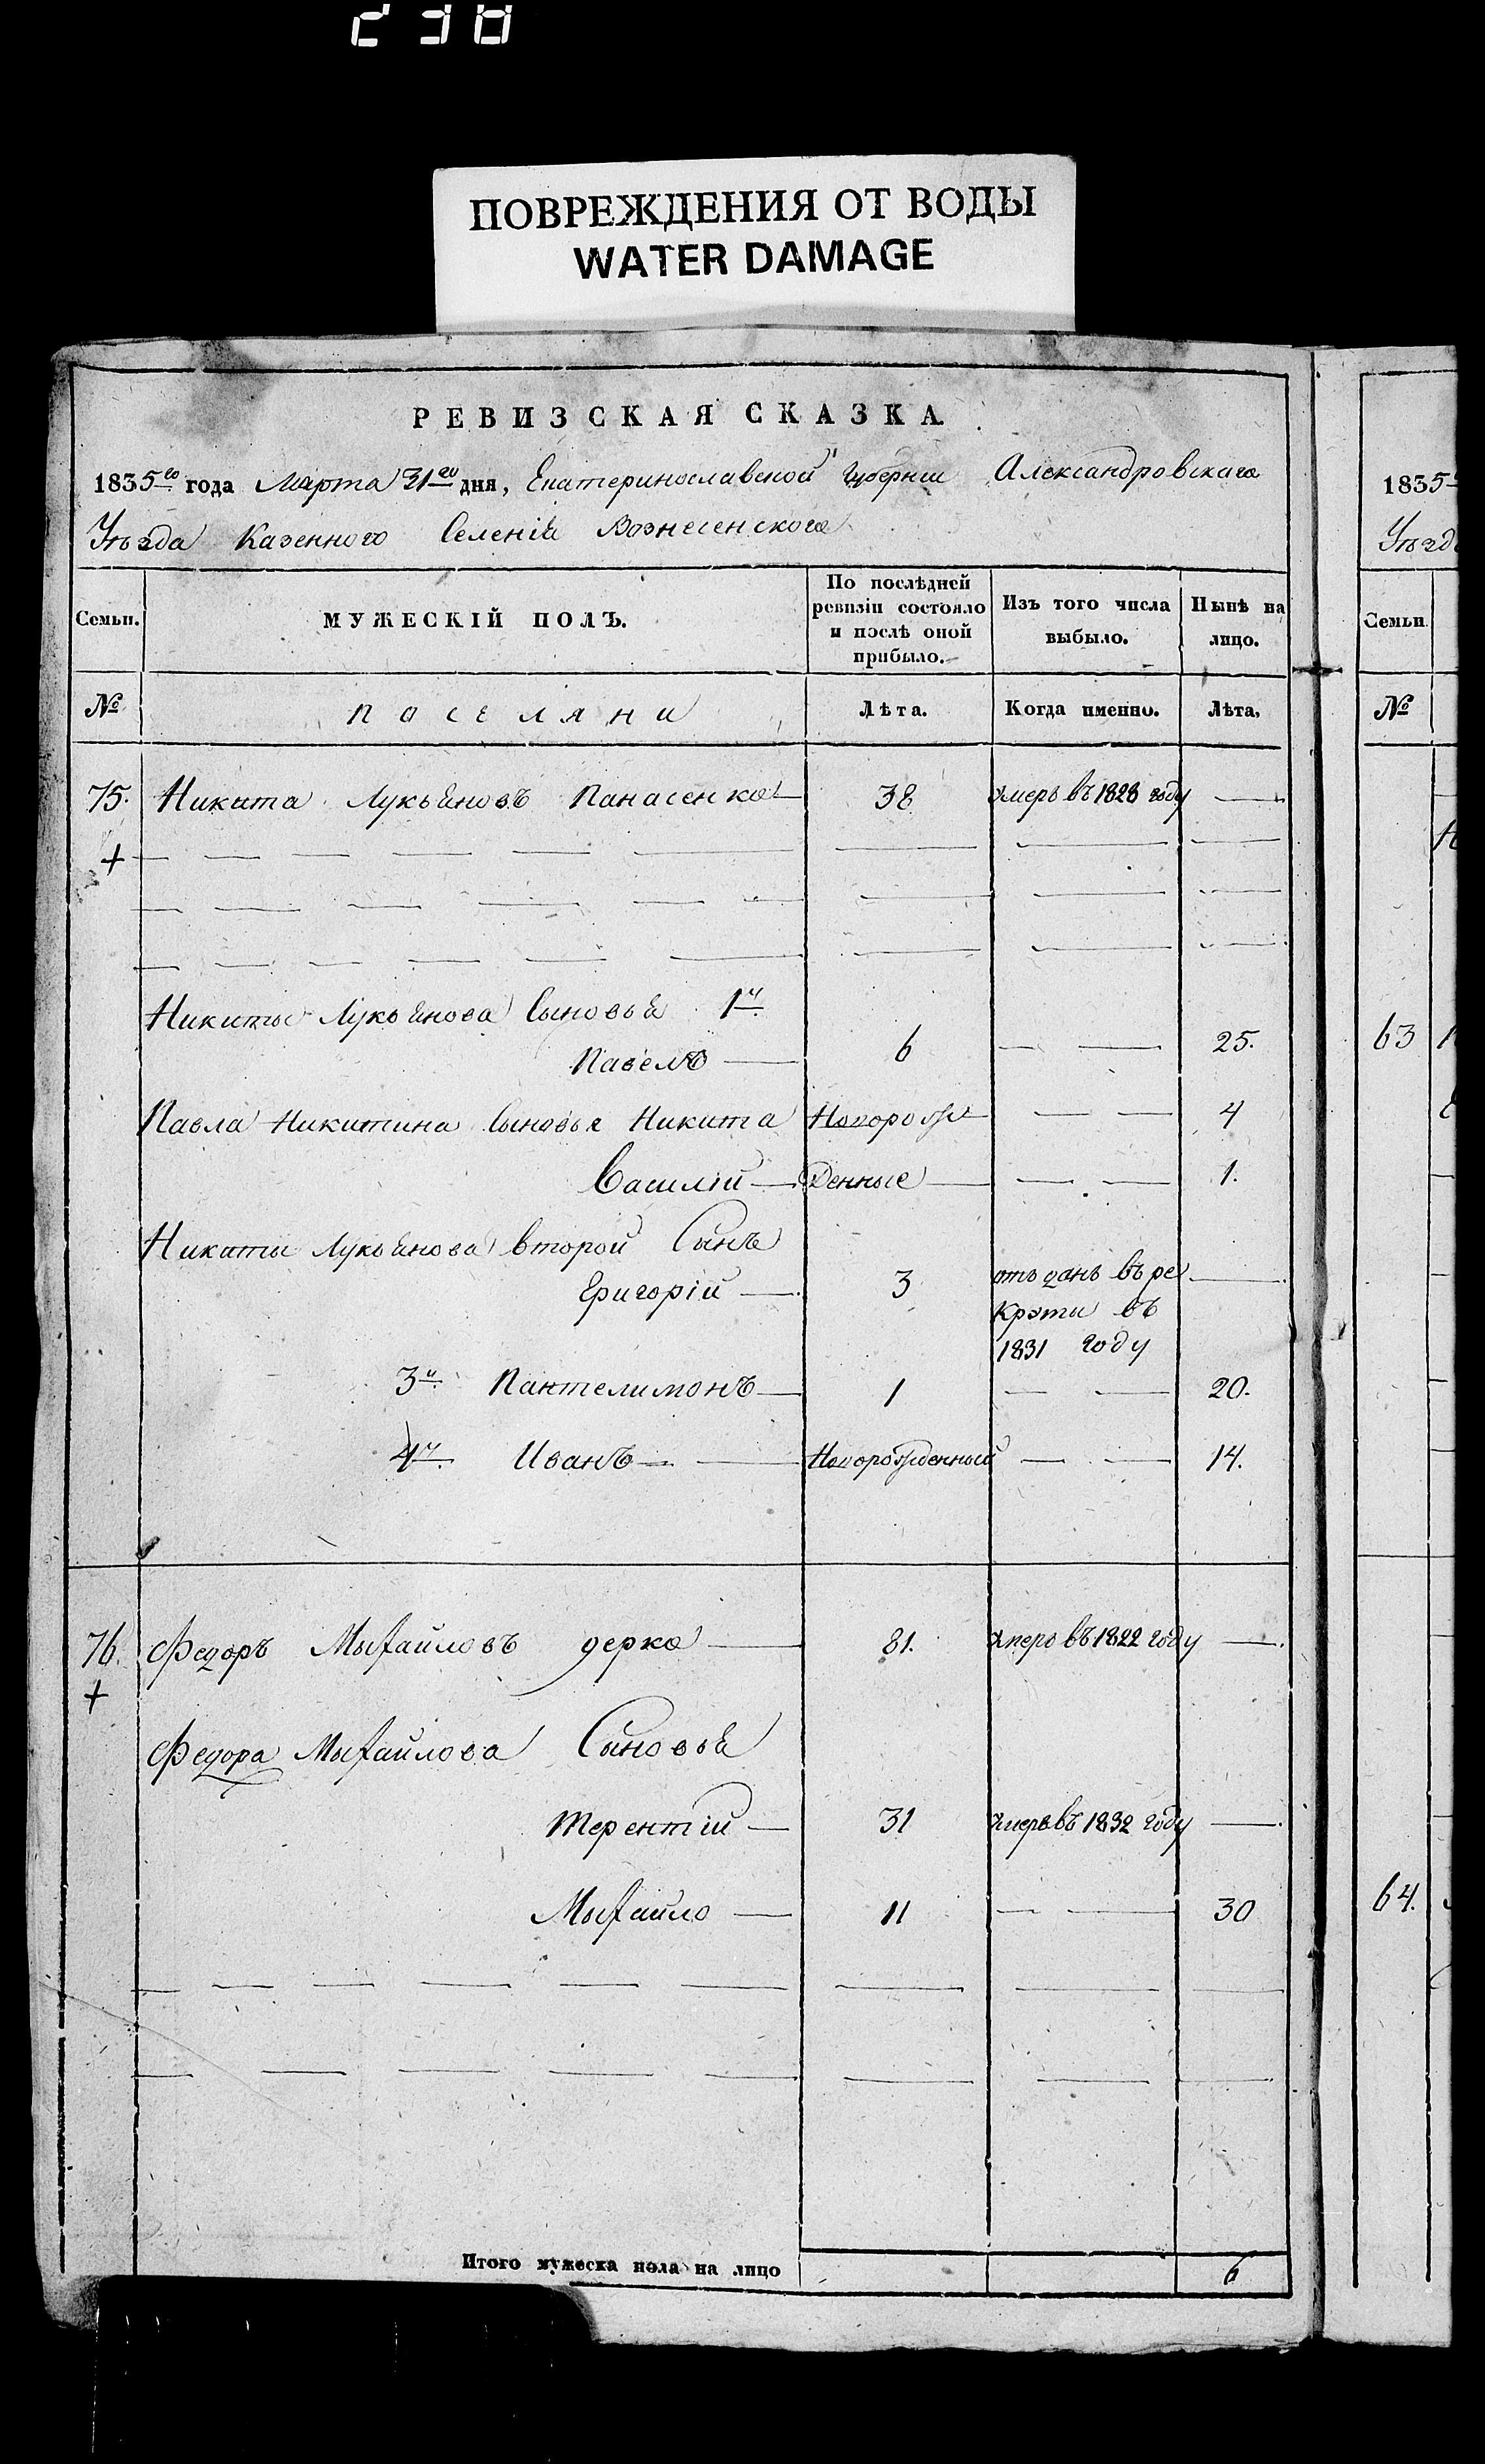 238
ПОВРЕЖДЕНИЯ ОТ ВОДЫ
WATER DAMAGE
РЕВИЗСКАЯ СКАЗКА.
1835го года Марта 31го дня, Екатеринославской Губернии Александровскаго
Уѣзда Казенного Селенія Вознесенского
Семьи.
МУЖЕСКІЙ ПОЛЪ.
По послѣдней ревизіи состояло и послѣ оной прибыло.
Изъ того числа выбыло.
Нынѣ на лицо.
№
Поселяни
Лѣта.
Когда именно.
Лѣта.
75. Никита Лукьяновъ Панасенко 38 умеръ въ 1828 году
+
Никиты Лукьянова Сыновья 1й
Павелъ 6 25.
Павла Никитина Сыновья Никита Новорож 4
Василій денные 1.
Никиты Лукьянова второй Сынъ
Григорій 3 отъданъ въ ре
крэти въ
1831 году
3й Пантелимонъ 1 20.
4й Иванъ Новорожденный 14.
76. Федоръ Мыхайловъ дерко 81. умеръ въ 1822 году
+
Федора Мыхайлова Сыновья
Терентій 31 умеръ въ 1832 году
Мыхайло 11 30
Итого мужеска пола на лицо 6
1835
Уѣзд
Семьи
№
63
64.